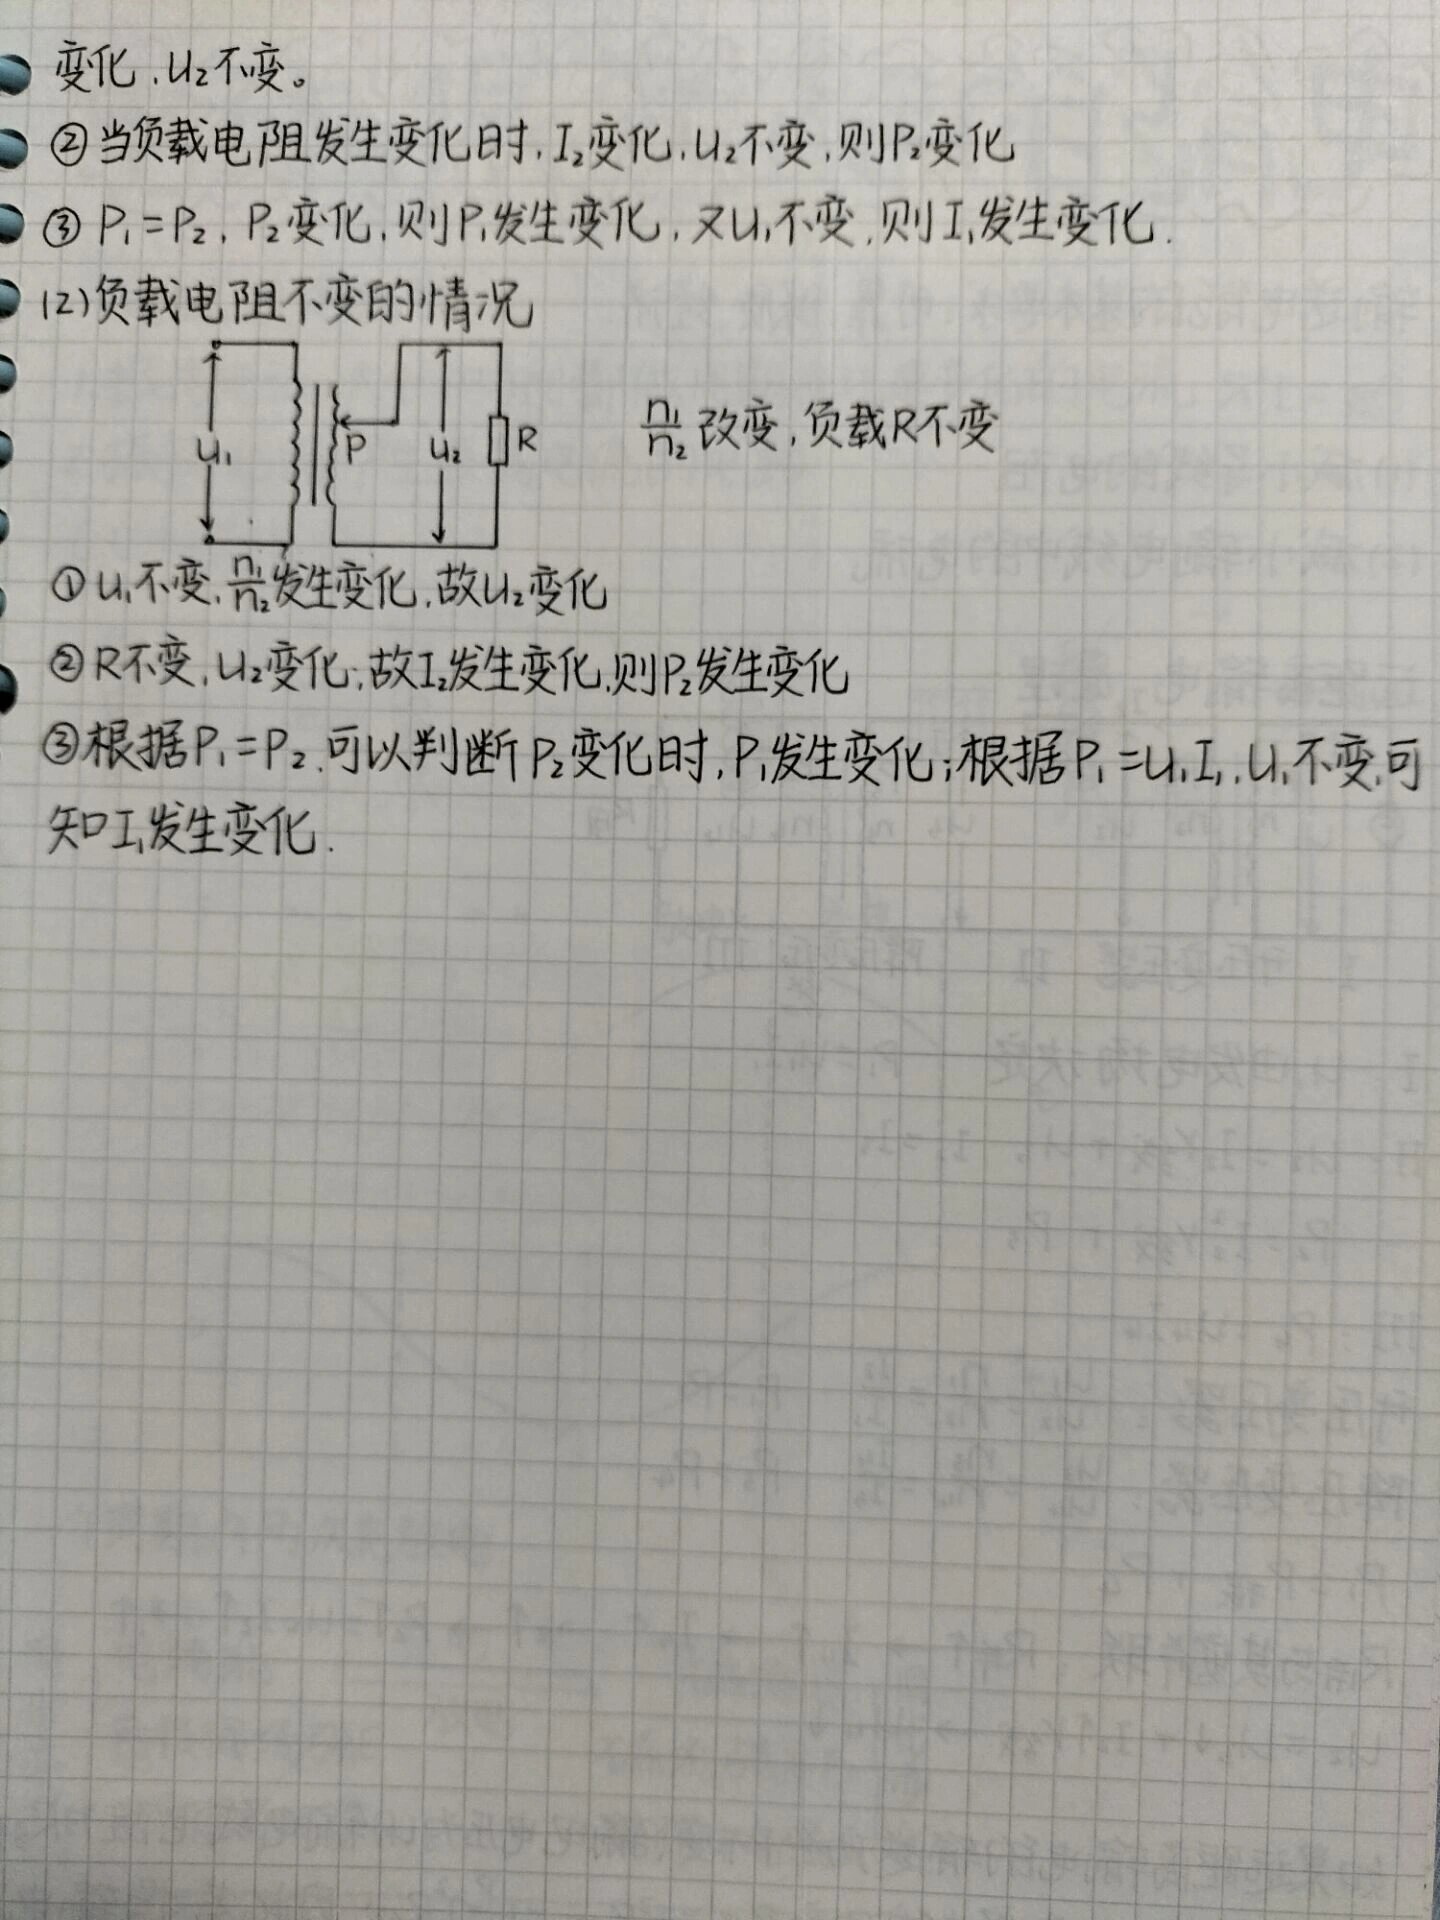 变化,U₂不变。
②当负载电阻发生变化时,I₂变化,U₂不变,则P₂变化
③P₁=P₂,P₂变化,则P₁发生变化,又U₁不变,则I₁发生变化.
(2)负载电阻不变的情况
U₁ P U₂ R
n₁/n₂改变,负载R不变
①U₁不变,n₁/n₂发生变化,故U₂变化
②R不变,U₂变化,故I₂发生变化,则P₂发生变化
③根据P₁=P₂,可以判断P₂变化时,P₁发生变化;根据P₁=U₁I₁,U₁不变,可
知I₁发生变化.